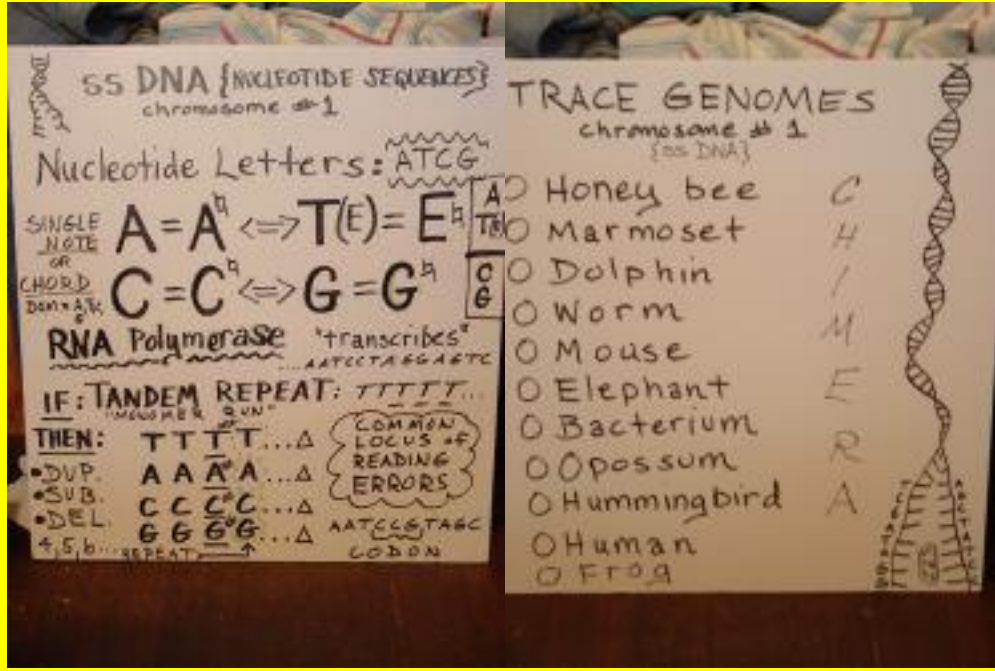 SS DNA {NUCLEOTIDE SEQUENCES}
chromosome # 1
Nucleotide Letters: ATCG
SINGLE NOTE OR CHORD
A = A♮ <=> T(E) = E♮
C = C♮ <=> G = G♮
A
T(E)
C
G
RNA Polymerase "transcribes"
...AATCCTAGGAGTC
IF: TANDEM REPEAT: TTTTT...
"MONOMER RUN"
THEN: T T T T...Δ
•DUP. A A A A...Δ
•SUB. C C C C...Δ
•DEL. G G G G...Δ
4,5,6... REPEAT
COMMON
LOCUS of
READING
ERRORS
AATCCGTAGC
CODON
TRACE GENOMES
chromosome # 1
{SS DNA}
O Honey bee
O Marmoset
O Dolphin
O Worm
O Mouse
O Elephant
O Bacterium
O Opossum
O Hummingbird
O Human
O Frog
C
H
I
M
E
R
A